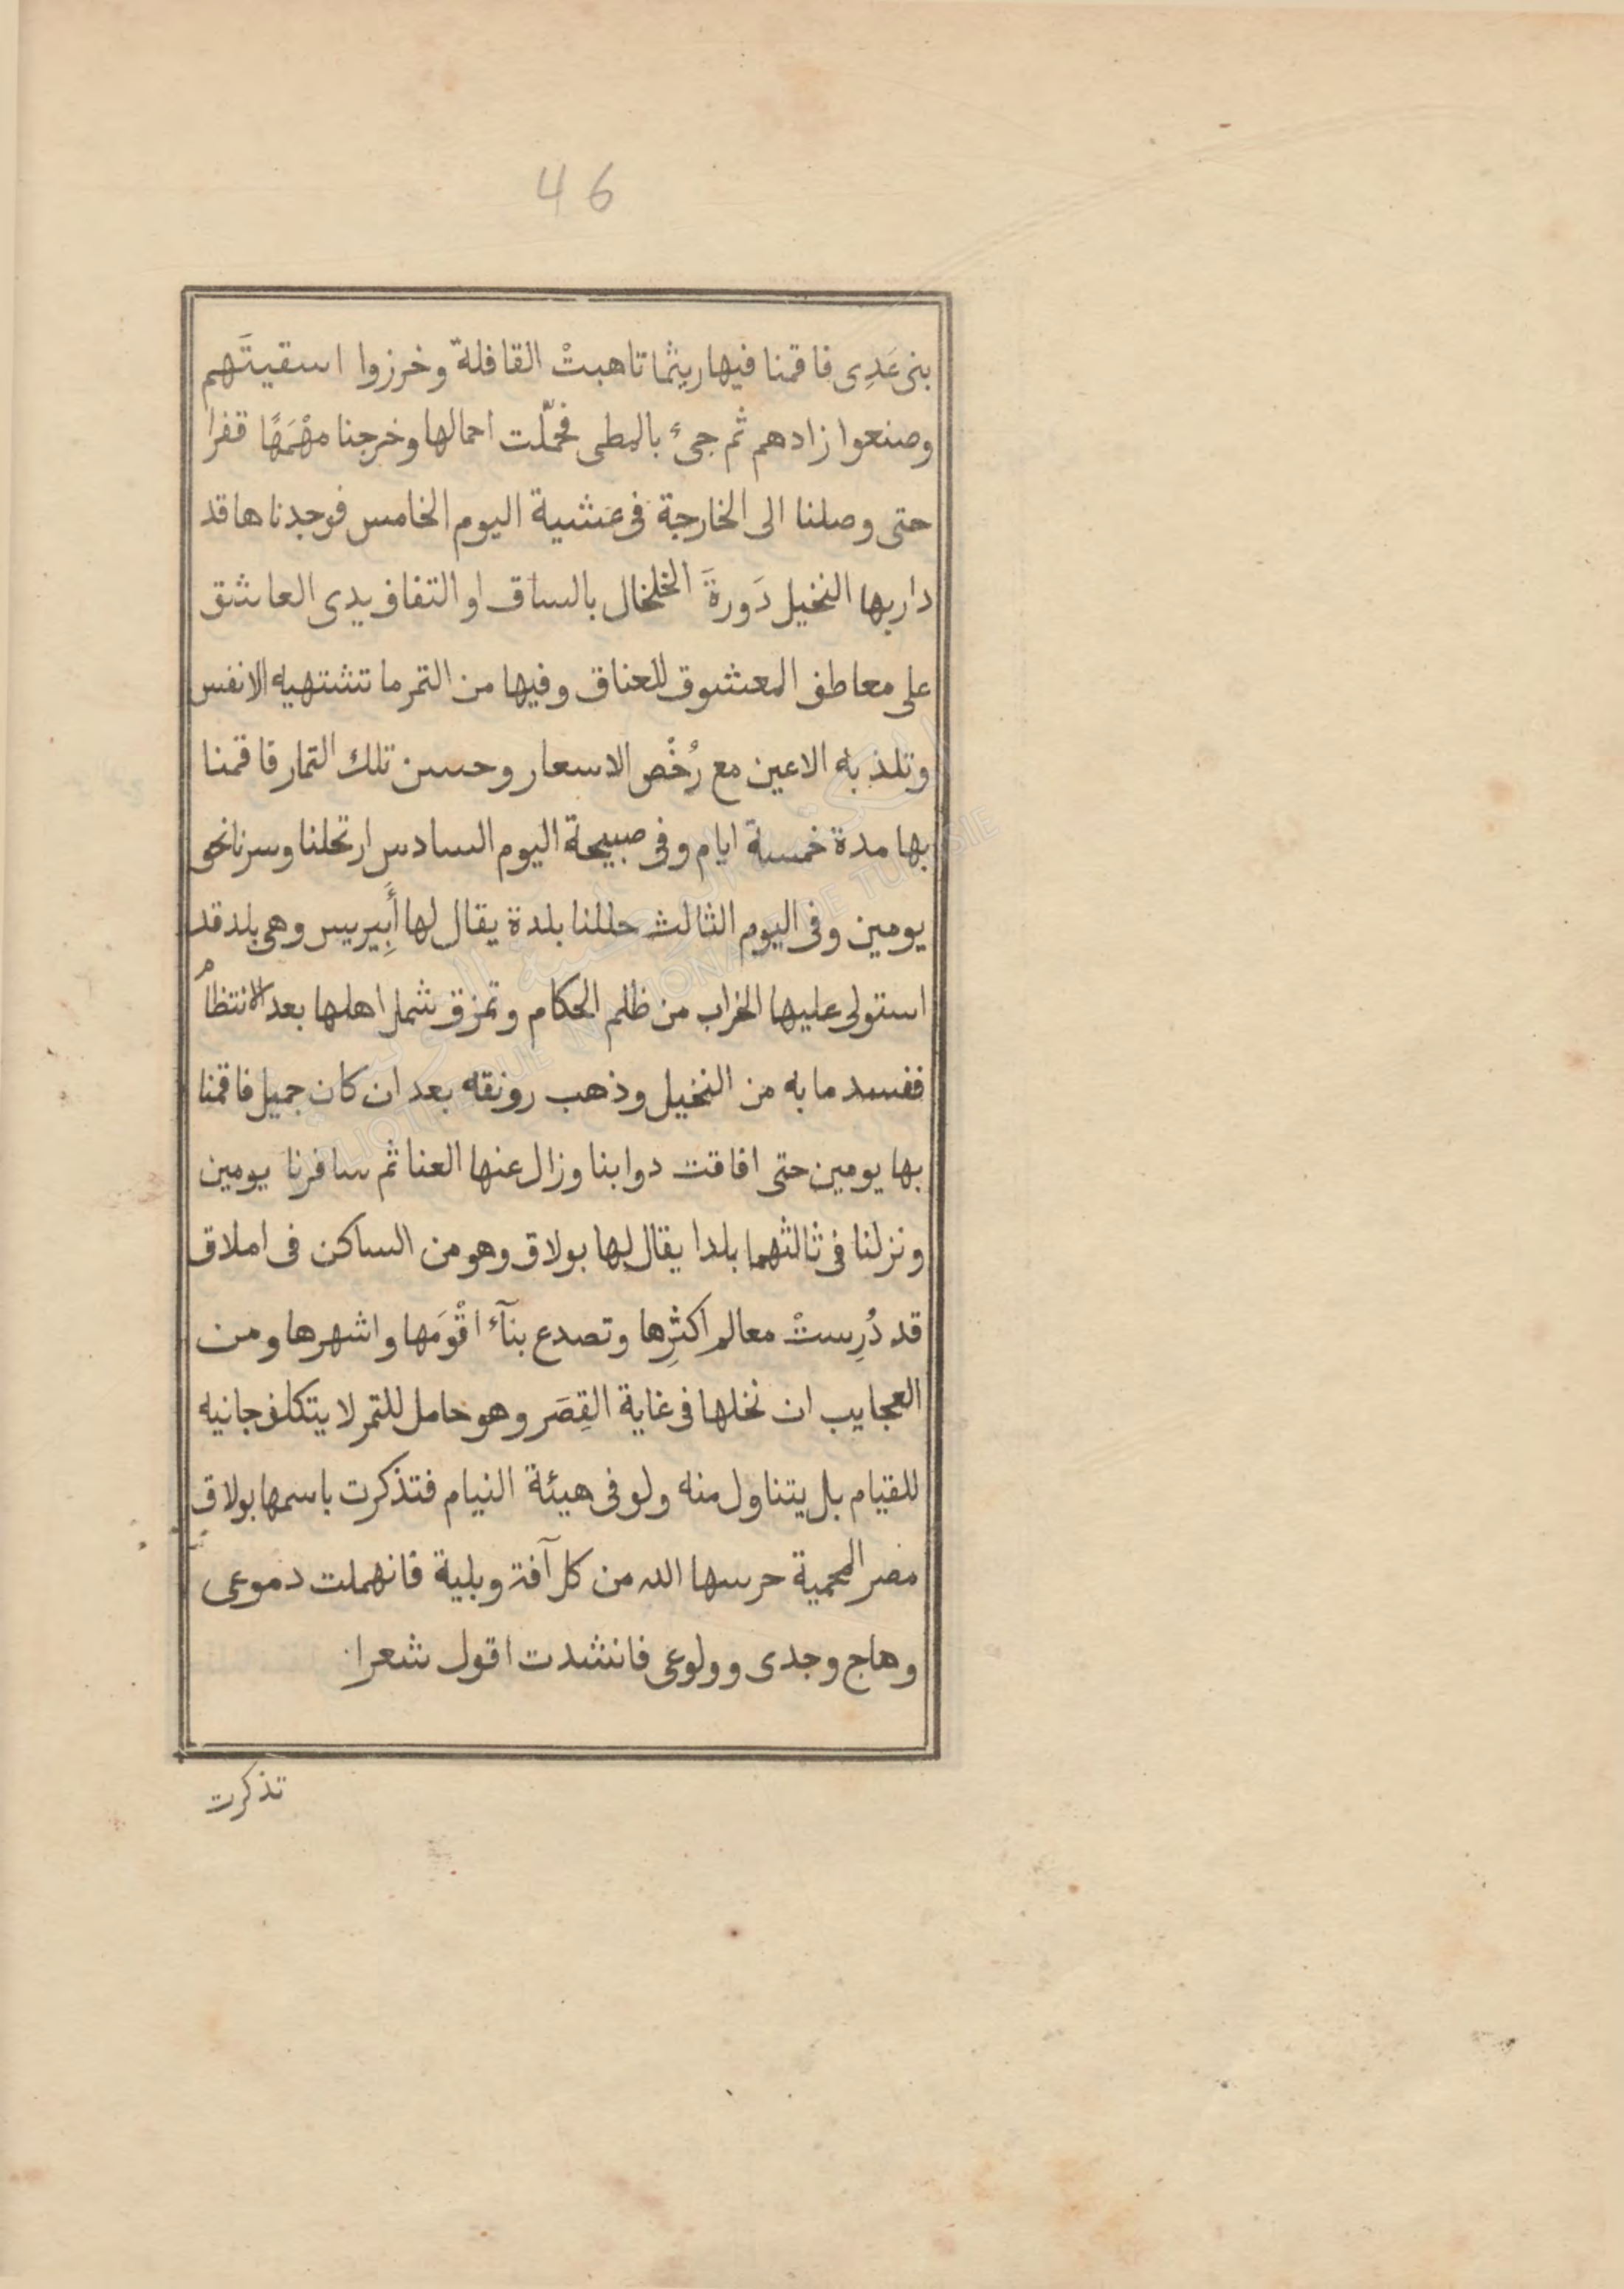 46
بنى عَدِى فاقمنا فيها ريثما تاهبتْ القافلة وخرزوا اسقيتَهم
وصنعوا زادهم ثم جىء بالمطى فحمّلت احمالها وخرجنا مهْمَهًا قفرا
حتى وصلنا الى الخارجة فى عشية اليوم الخامس فوجدناها قد
دار بها النخيل دَورةَ الخلخال بالساق او التفاف يدى العاشق
على معاطف المعشوق للعناق وفيها من التمر ما تشتهيه الانفس
وتلذ به الاعين مع رُخْص الاسعار وحسن تلك التمار فاقمنا
بها مدة خمسة ايام وفى صبيحة اليوم السادس ارتحلنا وسرنا نحو
يومين وفى اليوم الثالث حللنا بلدة يقال لها أَبِيريس وهى بلد قد
استولى عليها الخراب من ظلم الحكام وتمزق شمل اهلها بعد الانتظام
ففسد ما به من النخيل وذهب رونقه بعد ان كان جميل فاقمنا
بها يومين حتى افاقت دوابنا وزال عنها العنا ثم سافرنا يومين
ونزلنا فى ثالثهما بلدا يقال لها بولاق وهو من الساكن فى املاق
قد دُرِستْ معالم اكثرِها وتصدع بنآء اقْوَمها واشهرها ومن
العجايب ان نخلها فى غاية القِصَر وهو حامل للتمر لا يتكلف جانيه
للقيام بل يتناول منه ولو فى هيئة النيام فتذكرت باسمها بولاق
مصر المحمية حرسها الله من كل آفة وبلية فانهملت دموعى
وهاج وجدى وولوعى فانشدت اقول شعرا
تذكرت